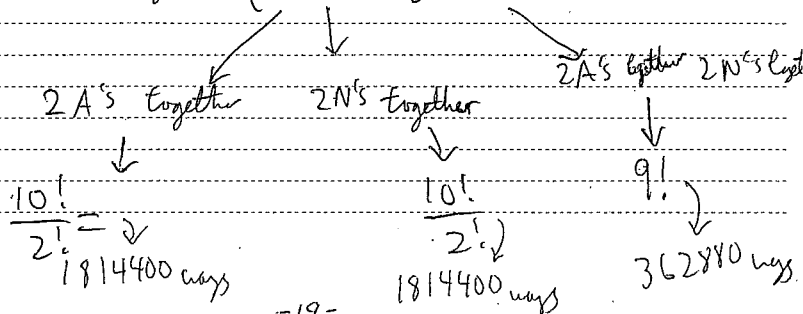 2 A's together 2N's together 2A's together 2N's toget
10!
2! =
1814400 ways
10!
2!
1814400 ways
9!
362880 ways
-19-